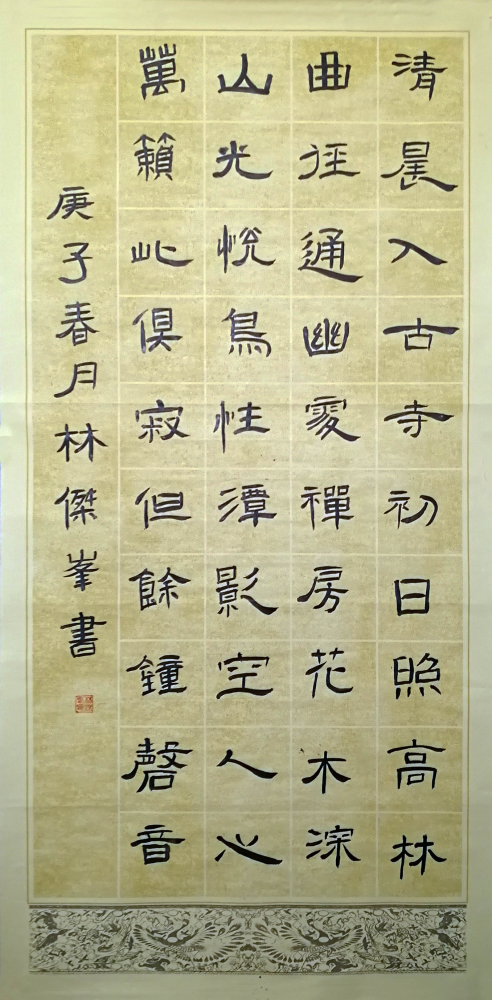 清晨入古寺初日照高林
曲徑通幽處禪房花木深
山光悅鳥性潭影空人心
萬籟此俱寂但餘鐘磬音
庚子春月林傑峯書